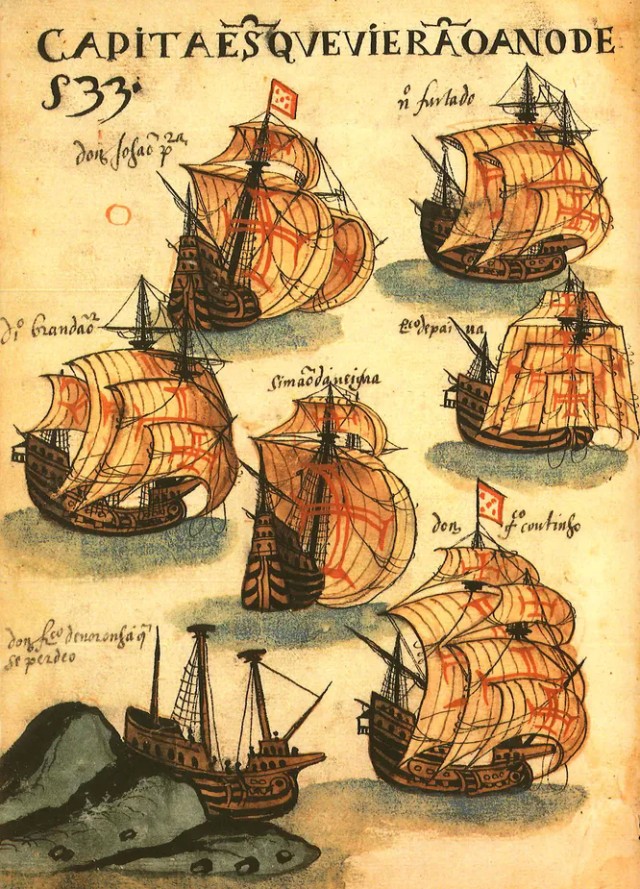 CAPITAẼS QVE VIERÃO ANO DE
533·
don Johaõ pra
nº furtado
dio brandaõ
Rco de pai va
simaõ da ueigua
don fco coutinho
don fco de noronha q̃
se perdeo